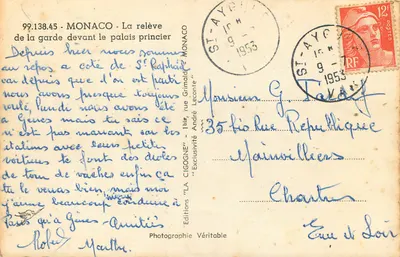 99.138.45 - MONACO - La relève
de la garde devant le palais princier
Depuis hier nous sommes
au repos a coté de St Raphaël
car depuis que l'on est parti
nous avons presque toujours
roulé, lundi nous avons été
a Gênes mais tu sais ce
n'est pas marrant car les
italiens avec leurs petites
voitures te font des drôles
de tour de vaches enfin ça
tu le verras bien, mais moi
j'aime beaucoup mieux conduire à
Paris qu'a Gênes - Amitiés
Robert Marthe
Editions "LA CIGOGNE" - 1bis, rue Grimaldi, MONACO
"Exclusivité André Leconte"
Photographie Véritable
ST-AYGULF
9 -7
1953
VAR
ST-AYGULF
9 -7
1953
VAR
12F
RF
Monsieur G
35 bis Rue République
Mainvilliers
Chartres
Eure et Loir